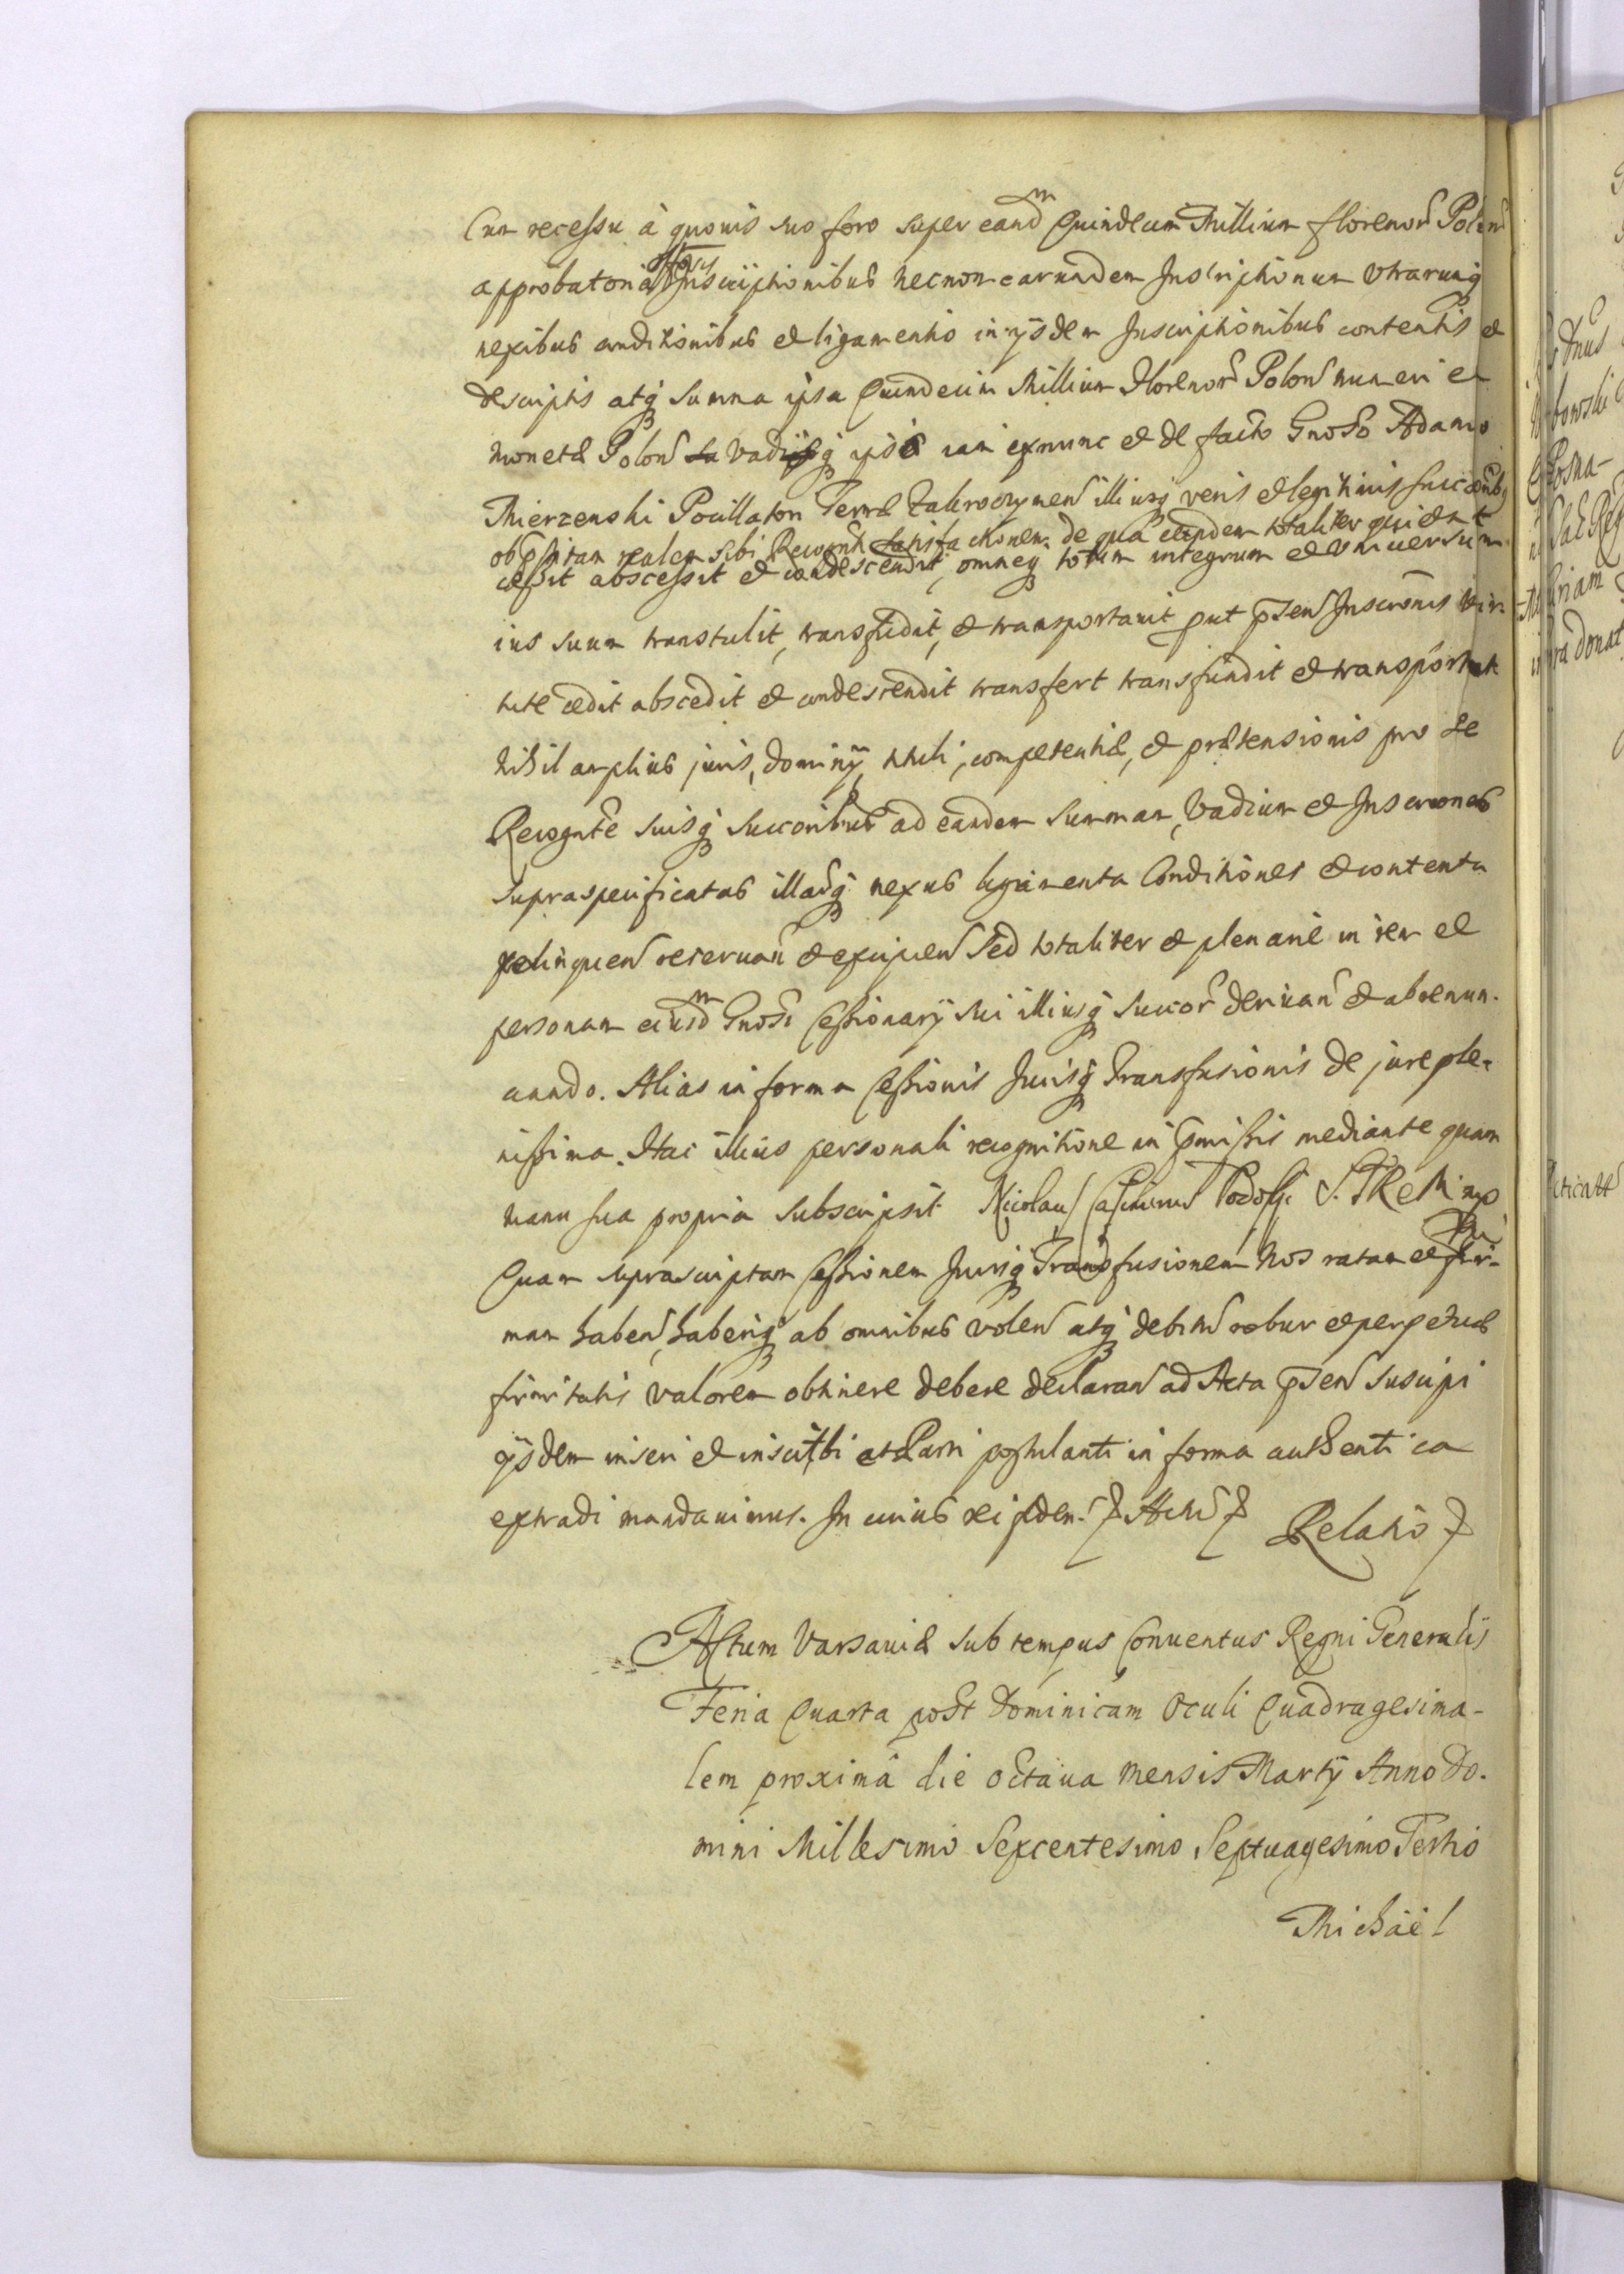 Cum recessu à quovis suo foro super eand m Quindecim Millium florenor Polon
approbatoria Inscriptionibus necnon earundem Inscriptionum utrarunq
nexibus conditionibus et ligamentis in ijsdem Inscriptionibus contentis et
descriptis atq summa ipsa Quindecim Millium Florenor Polon numeri et
monetæ Polon vadijq ipsis iam exnunc et de facto Gnoso Adamo
Mierzenski Pocillatori Terræ Zakroczymen illiusq veris et legitimis succorib
ob realem sibi Recognti satisfactionem de qua eundem totaliter quietat
cessit abscessit et condescendit, omneq totum integrum et universum
ius suum transtulit, transfudit, et transportavit put pñsen Inscrōnis vir
tute cedit abscedit et condescendit transfert transfundit et transportat
nihil amplius juris, dominij, tituli, competentiæ, et prætensionis pro se
Recognte suisq succoribus ad eandem summam, Vadium et Inscrōnes
supraspecificatas illarq nexus ligamenta Conditiones et contenta
relinquen reservan et excipien sed totaliter et plenariè in rem et
personam eiusd m Gnosi Cessionarij sui illiusq succor derivan et abrenun-
ciando. Alias in forma Cessionis Jurisq Transfusionis de jure ple-
nissima. Hac illius personali recognitione in præmissis mediante quam
manu sua propria subscripsit Nicolaus Casimirus Podoski S. T. R. C. M. mp
Quam suprascriptam Cessionem Jurisq Transfusionem Nos ratam et fir-
mam haben, haberiq ab omnibus volen atq debitū robur et perpetuæ
firmitatis valorem obtinere debere declaran ad Acta pñsen suscipi
ijsdem inseri et inscribi et Parti postulanti in forma authentica
extradi mandavimus. In cuius rei fidem. Actū Relatio
Actum Varsaviæ sub tempus Conventus Regni Generalis
Feria Quarta post Dominicam Oculi Quadragesima-
lem proximâ die octava mensis Martij Anno Do-
mini Millesimo Sexcentesimo Septuagesimo Tertio
Michaël